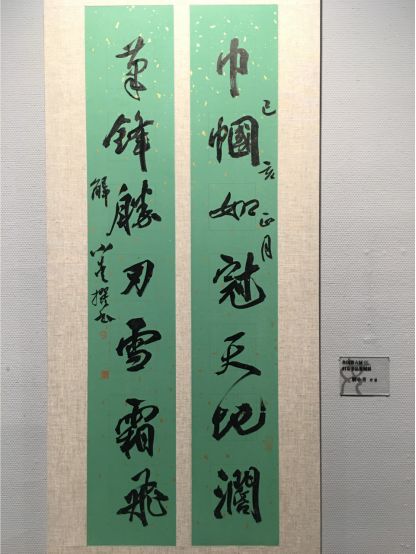 巾幗如冠天地濶
己亥正月
筆鋒勝刃雪霜飛
解小青撰书